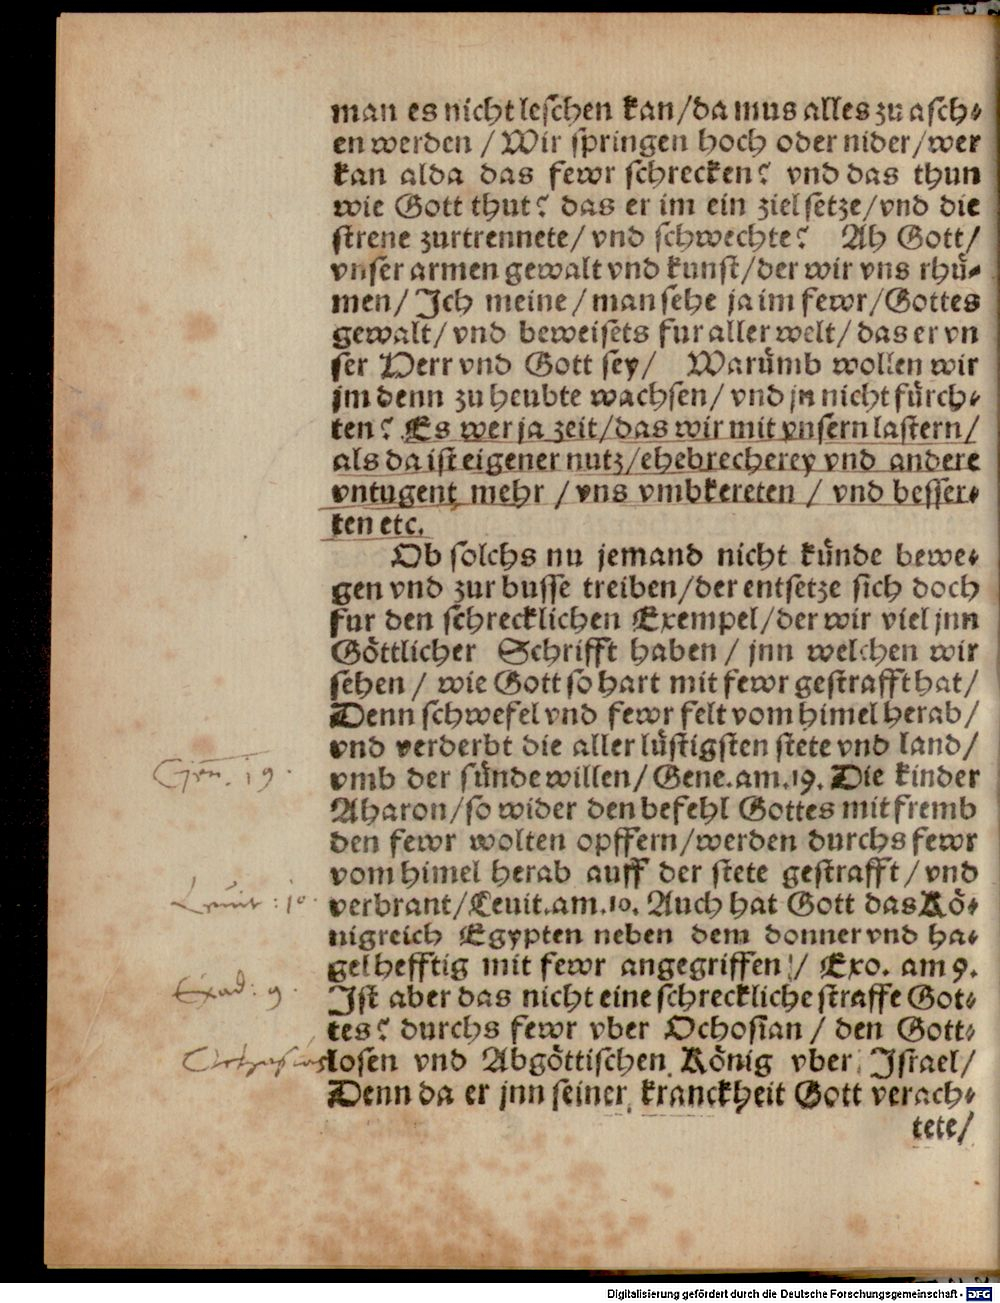 man es nicht leschen kan/da mus alles zu asch⸗
en werden / Wir springen hoch oder nider/wer
kan alda das fewr schrecken? vnd das thun
wie Gott thut? das er im ein ziel setze/vnd die
strene zurtrennete/ vnd schwechte? Ah Gott/
vnser armen gewalt vnd kunst/der wir vns rhü⸗
men/ Ich meine / man sehe ja im fewr/Gottes
gewalt/ vnd beweisets fur aller welt/ das er vn
ser Herr vnd Gott sey/ Warümb wollen wir
jm denn zu heubte wachsen/ vnd jn nicht fürch⸗
ten? Es wer ja zeit/das wir mit vnsern lastern/
als da ist eigener nutz/ehebrecherey vnd andere
vntugent mehr / vns vmbkereten / vnd besser⸗
ten etc.
Ob solchs nu jemand nicht künde bewe⸗
gen vnd zur busse treiben/der entsetze sich doch
fur den schrecklichen Exempel/der wir viel jnn
Göttlicher Schrifft haben / jnn welchen wir
sehen / wie Gott so hart mit fewr gestrafft hat/
Denn schwefel vnd fewr felt vom himel herab/
vnd verderbt die aller lüstigsten stete vnd land/
Gen. 19.
vmb der sünde willen/ Gene. am. 19. Die kinder
Aharon/so wider den befehl Gottes mit fremb
den fewr wolten opffern/werden durchs fewr
vom himel herab auff der stete gestrafft / vnd
Leuit: 10.
verbrant/Leuit. am. 10. Auch hat Gott das Kö⸗
nigreich Egypten neben dem donner vnd ha⸗
gel hefftig mit fewr angegriffen / Exo. am 9.
Exod: 9.
Ist aber das nicht eine schreckliche straffe Got⸗
tes? durchs fewr vber Ochosian / den Gott⸗
losen vnd Abgöttischen König vber Israel/
Denn da er jnn seiner kranckheit Gott verach⸗
tete/
Digitalisierung gefördert durch die Deutsche Forschungsgemeinschaft - DFG